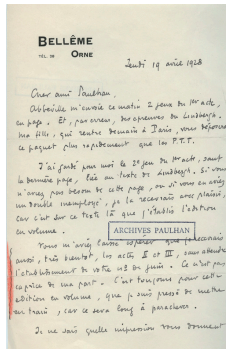 BELLÊME
TEL. 28 ORNE
Jeudi 19 avril 1928
Cher ami Paulhan,
Abbeville m'envoie ce matin 2 jeux du 1er acte,
en page. Et, par erreur, des épreuves du Lindbergh.
Ma fille, qui rentre demain à Paris, vous déposera
ce paquet plus rapidement que les P.T.T.
J'ai gardé pour moi le 2e jeu du 1er acte, sauf
la dernière page, liée au texte de Lindbergh. Si vous
n'aviez pas besoin de cette page, ou si vous en aviez
un double inemployé, je la recevrais avec plaisir,
car c'est sur ce texte là que j'établis l'édition
en volume.
ARCHIVES PAULHAN
Vous m'aviez laissé espérer que je recevrais
aussi, très bientôt, les actes II et III, sans attendre
l'établissement de votre no de juin. Ce n'est pas
caprice de ma part. C'est toujours pour cette
édition en volume, que je suis pressé de mettre
en train, car ce sera long à parachever.
Je ne sais quelle impression vous donnent